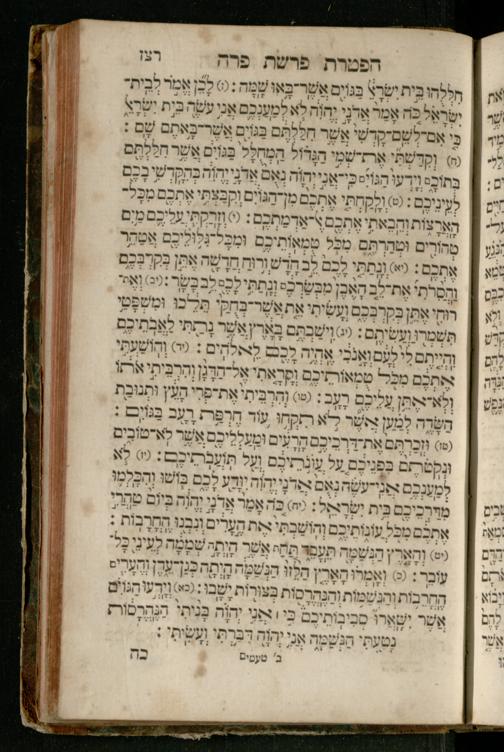 הפטרת פרשת פרה רצז
חִלְּלֻהוּ בֵּית יִשְׂרָאֵל בַּגּוֹיִם אֲשֶׁר־בָּאוּ שָׁמָּה: (ז) לָכֵן אֱמֹר לְבֵית־
יִשְׂרָאֵל כֹּה אָמַר אֲדֹנָי יֱהֹוִה לֹא לְמַעַנְכֶם אֲנִי עֹשֶׂה בֵּית יִשְׂרָאֵל
כִּי אִם־לְשֵׁם־קָדְשִׁי אֲשֶׁר חִלַּלְתֶּם בַּגּוֹיִם אֲשֶׁר־בָּאתֶם שָׁם:
(ח) וְקִדַּשְׁתִּי אֶת־שְׁמִי הַגָּדוֹל הַמְחֻלָּל בַּגּוֹיִם אֲשֶׁר חִלַּלְתֶּם
בְּתוֹכָם וְיָדְעוּ הַגּוֹיִם כִּי־אֲנִי יְהֹוָה נְאֻם אֲדֹנָי יֱהֹוִה בְּהִקָּדְשִׁי בָכֶם
לְעֵינֵיכֶם: (ט) וְלָקַחְתִּי אֶתְכֶם מִן־הַגּוֹיִם וְקִבַּצְתִּי אֶתְכֶם מִכָּל־
הָאֲרָצוֹת וְהֵבֵאתִי אֶתְכֶם אֶל־אַדְמַתְכֶם: (י) וְזָרַקְתִּי עֲלֵיכֶם מַיִם
טְהוֹרִים וּטְהַרְתֶּם מִכֹּל טֻמְאוֹתֵיכֶם וּמִכָּל־גִּלּוּלֵיכֶם אֲטַהֵר
אֶתְכֶם: (יא) וְנָתַתִּי לָכֶם לֵב חָדָשׁ וְרוּחַ חֲדָשָׁה אֶתֵּן בְּקִרְבְּכֶם
וַהֲסִרֹתִי אֶת־לֵב הָאֶבֶן מִבְּשַׂרְכֶם וְנָתַתִּי לָכֶם לֵב בָּשָׂר: (יב) וְאֶת־
רוּחִי אֶתֵּן בְּקִרְבְּכֶם וְעָשִׂיתִי אֵת אֲשֶׁר־בְּחֻקַּי תֵּלֵכוּ וּמִשְׁפָּטַי
תִּשְׁמְרוּ וַעֲשִׂיתֶם: (יג) וִישַׁבְתֶּם בָּאָרֶץ אֲשֶׁר נָתַתִּי לַאֲבֹתֵיכֶם
וִהְיִיתֶם לִי לְעָם וְאָנֹכִי אֶהְיֶה לָכֶם לֵאלֹהִים: (יד) וְהוֹשַׁעְתִּי
אֶתְכֶם מִכֹּל טֻמְאוֹתֵיכֶם וְקָרָאתִי אֶל־הַדָּגָן וְהִרְבֵּיתִי אֹתוֹ
וְלֹא־אֶתֵּן עֲלֵיכֶם רָעָב: (טו) וְהִרְבֵּיתִי אֶת־פְּרִי הָעֵץ וּתְנוּבַת
הַשָּׂדֶה לְמַעַן אֲשֶׁר לֹא תִקְחוּ עוֹד חֶרְפַּת רָעָב בַּגּוֹיִם:
(טז) וּזְכַרְתֶּם אֶת־דַּרְכֵיכֶם הָרָעִים וּמַעַלְלֵיכֶם אֲשֶׁר לֹא־טוֹבִים
וּנְקֹטֹתֶם בִּפְנֵיכֶם עַל עֲוֹנֹתֵיכֶם וְעַל תּוֹעֲבֹתֵיכֶם: (יז) לֹא
לְמַעַנְכֶם אֲנִי־עֹשֶׂה נְאֻם אֲדֹנָי יֱהֹוִה יִוָּדַע לָכֶם בּוֹשׁוּ וְהִכָּלְמוּ
מִדַּרְכֵיכֶם בֵּית יִשְׂרָאֵל: (יח) כֹּה אָמַר אֲדֹנָי יֱהֹוִה בְּיוֹם טַהֲרִי
אֶתְכֶם מִכֹּל עֲוֹנוֹתֵיכֶם וְהוֹשַׁבְתִּי אֶת־הֶעָרִים וְנִבְנוּ הֶחֳרָבוֹת:
(יט) וְהָאָרֶץ הַנְּשַׁמָּה תֵּעָבֵד תַּחַת אֲשֶׁר הָיְתָה שְׁמָמָה לְעֵינֵי כָּל־
עוֹבֵר: (כ) וְאָמְרוּ הָאָרֶץ הַלֵּזוּ הַנְּשַׁמָּה הָיְתָה כְּגַן־עֵדֶן וְהֶעָרִים
הֶחֳרֵבוֹת וְהַנְשַׁמּוֹת וְהַנֶּהֱרָסוֹת בְּצוּרוֹת יָשָׁבוּ: (כא) וְיָדְעוּ הַגּוֹיִם
אֲשֶׁר יִשָּׁאֲרוּ סְבִיבוֹתֵיכֶם כִּי אֲנִי יְהֹוָה בָּנִיתִי הַנֶּהֱרָסוֹת
נָטַעְתִּי הַנְּשַׁמָּה אֲנִי יְהֹוָה דִּבַּרְתִּי וְעָשִׂיתִי:
ב׳ טעמים כה